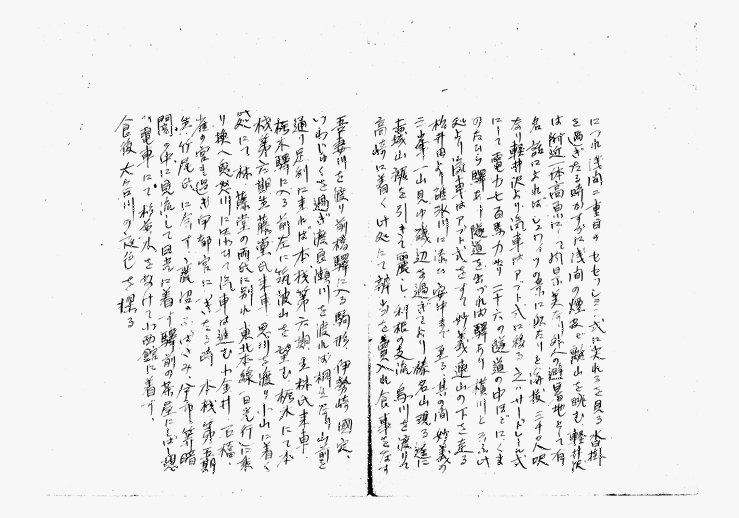 につれ浅間二重目のセセッション式に突れるを見る沓掛
を過ぎたる時かすかに浅間の煙及び離山を眺む軽井沢
は附近一体高原にして風景美なり外人の避暑地として有
名 話によればスイッツの景に似たりと海抜三千〇八呎
なり軽井沢より汽車はアプト式に移る 之ハサードレール式
にて電力七百馬力なり二十六の隧道の中ほどにくま
のたひら驛あり 隧道を出づれば驛あり 横川と云ふ此
処より汽車はアプト式をすて妙義連山の下を走る
松井田より碓氷川に添ひ安中に至る 其の間 妙義の
三峯一山見ゆ磯辺を過ぎてより榛名山現る遂に
赤城山麓を引きて麗し、利根の支流烏川を渡りて
高崎に着く此処にて辨当を買入れ食事をなす
吾妻川を渡り前橋驛に入る 駒形、伊勢崎 國定、
いわじゅくを過ぎ渡良瀬川を渡れば桐生なり 山前を
通り足利に来れば本校第六期生林氏来車、
栃木驛に入る前左に筑波山を望む 栃木にて本
校第六期生藤堂氏来車 思川を渡り小山に着く
此処にて林、藤堂の両氏に別れ東北本線(日光行)に乗
り換へ 鬼怒川に沿わせて汽車は進む 小金井 石橋、
雀の宮を過ぎ宇都宮につぎたる時、本校第五期
生竹尾氏に会す、鹿沼 ふばさみ 今市等暗
闇の中に見流して日光に着す 驛前の茶屋にて小憩
の電車にて杉並木をぬけて小西館に着す。
食後大谷川の夜色を探る